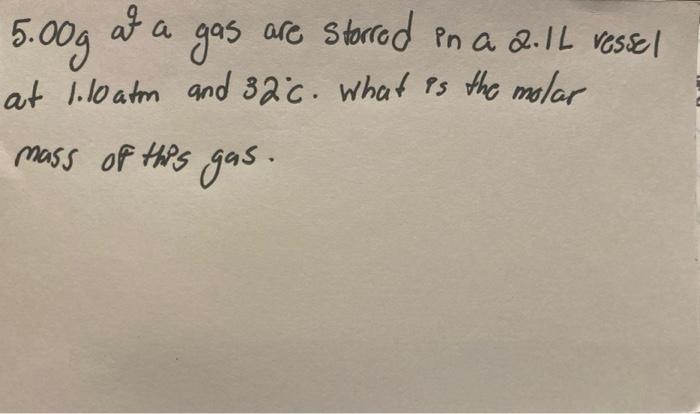 5.00g of a gas are storred in a 2.1L vessel
at 1.10atm and 32°c. what is the molar
mass of this gas.